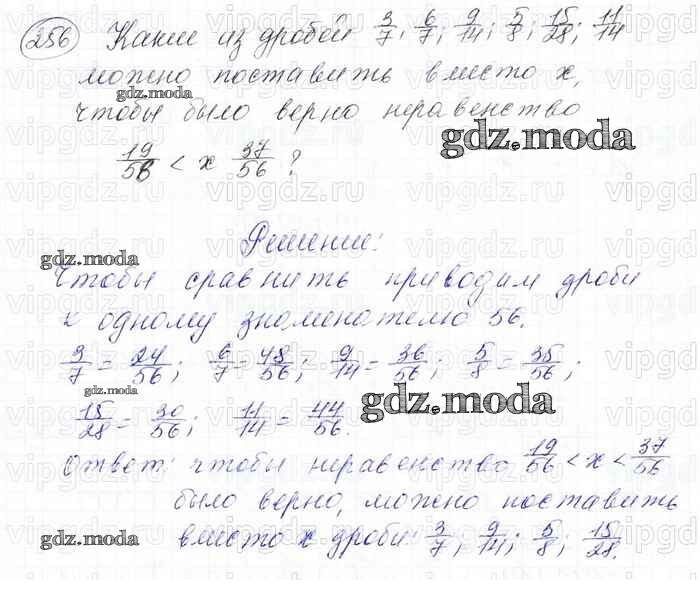 256 Какие из дробей 3/7; 6/7; 9/14; 5/8; 15/28; 11/14
можно поставить вместо x,
gdz.moda
чтобы было верно неравенство
gdz.moda
19/56 < x 37/56 ?
Решение:
gdz.moda
Чтобы сравнить приводим дроби
к одному знаменателю 56.
3/7 = 24/56; 6/7 = 48/56; 9/14 = 36/56; 5/8 = 35/56;
gdz.moda
15/28 = 30/56; 11/14 = 44/56.
gdz.moda
Ответ: чтобы неравенство 19/56 < x < 37/56
было верно, можно поставить
gdz.moda
вместо x дроби: 3/7; 9/14; 5/8; 15/28.